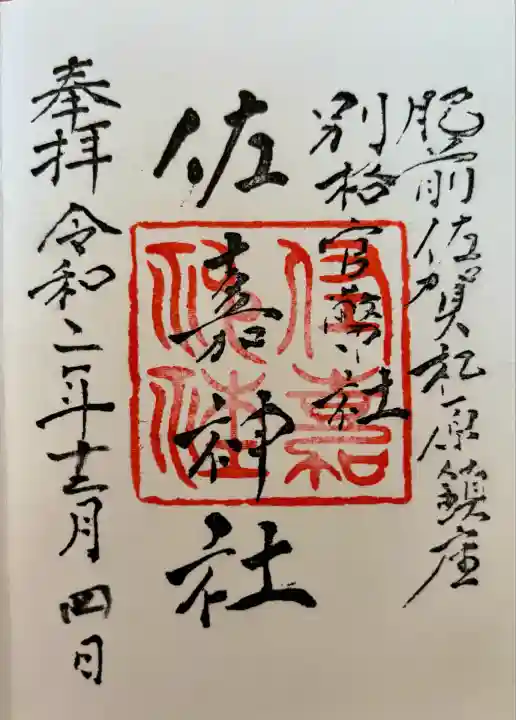 肥前佐賀松原鎮座
別格官幣社
佐嘉神社
奉拝 令和二年十二月四日